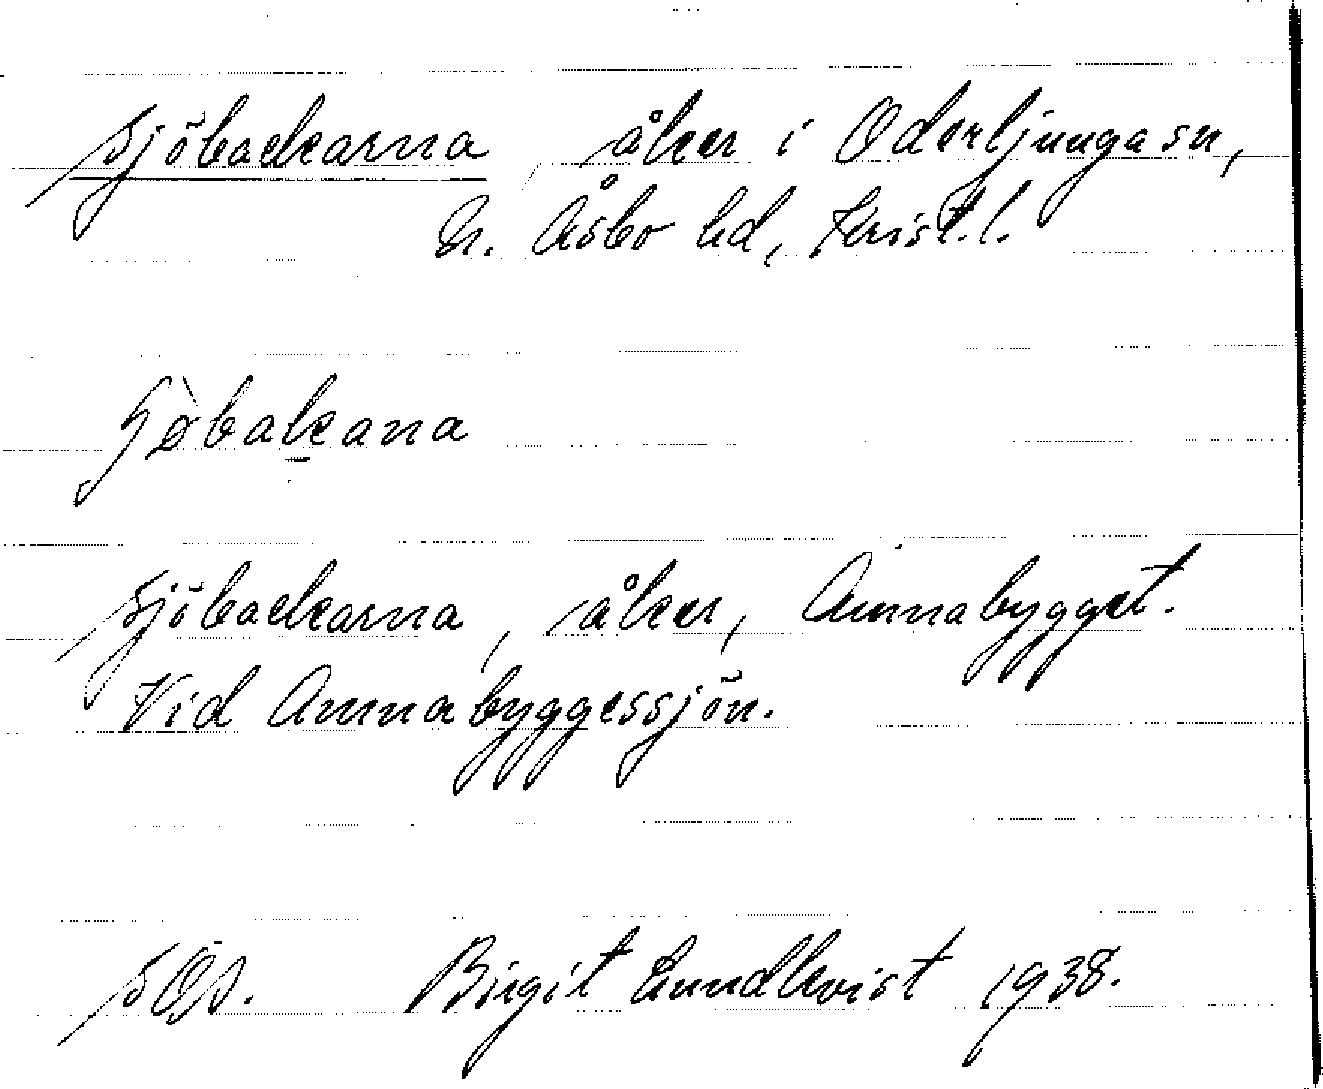 Sjöbackarna, åker i Oderljunga sn,
N. Åsbo hd, Krist.l.
Sjöbackarna, åker, Annabygget.
Vid Annabyggessjön.
SOJ. Birgit Lundkvist 1938.